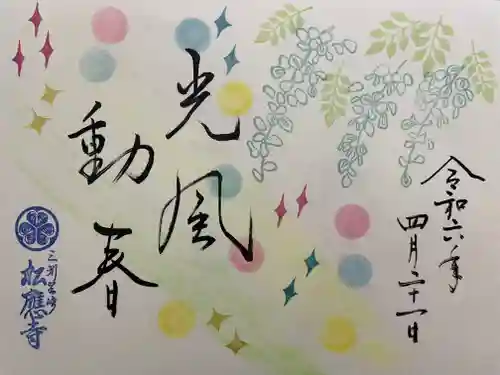 光風
動春
令和六年
四月二十一日
松應寺